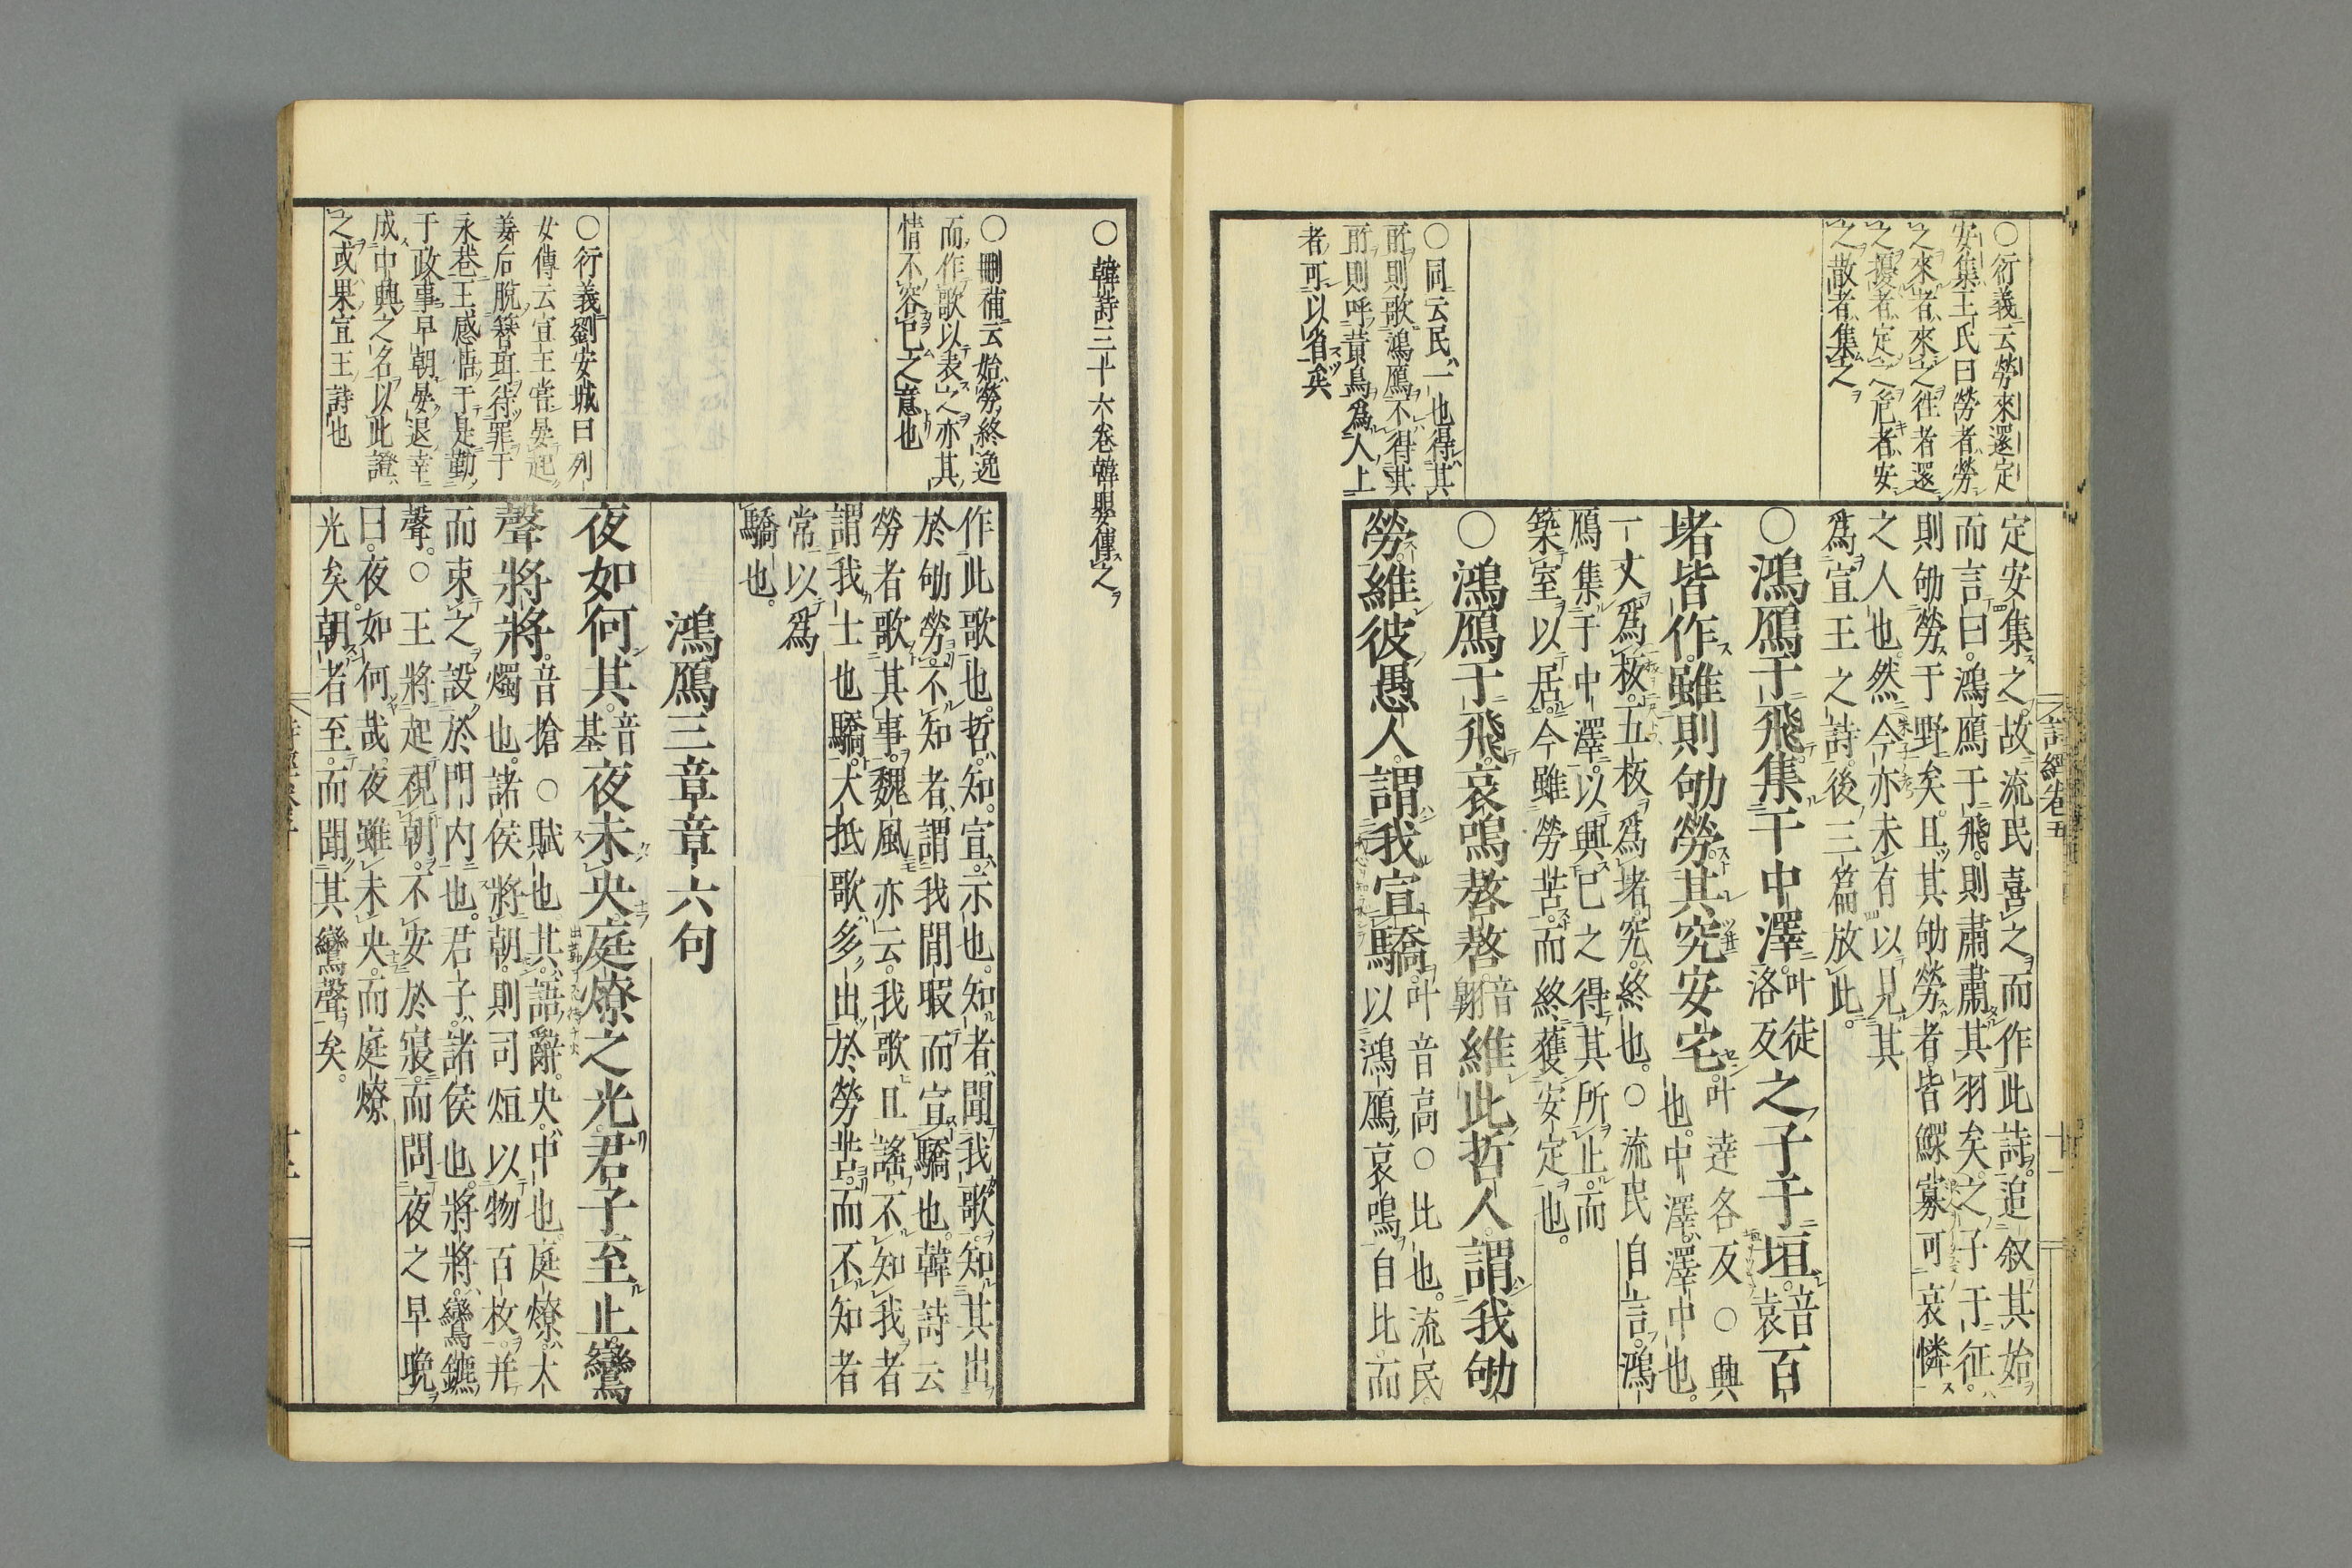 詩經卷五
十一
○衍義云勞來還定
安集王氏曰勞者勞
之來者來之往者還
之擾者定之危者安
之散者集之
定安集之故流民喜之而作此詩追叙其始
而言曰鴻鴈于飛則肅肅其羽矣之子于征
則劬勞于野矣且其劬勞者皆鰥寡可哀憐
之人也然今亦未有以見其
爲宣王之詩後三篇放此
○鴻鴈于飛集于中澤叶徒洛反之子于垣音袁百
堵皆作雖則劬勞其究安宅叶達各反○興也中澤澤中也
一丈爲板五板爲堵究終也○流民自言鴻
鴈集于中澤以興己之得其所止而
築室以居今雖勞苦而終獲安定也
○同云民一也得其
所則歌鴻鴈不得其
所則呼黃鳥爲人上
者可以省矣
○鴻鴈于飛哀鳴嗸嗸音翺維此哲人謂我劬
勞維彼愚人謂我宣驕叶音高○比也流民以鴻鴈哀鳴自比而
○韓詩三十六卷韓嬰傳之
○刪補云始勞終逸
而作歌以表之亦其
情不容已之意也
作此歌也哲知宣示也知者聞我歌知其出
於劬勞不知者謂我閒暇而宣驕也韓詩云
勞者歌其事魏風亦云我歌且謠不知我者
謂我士也驕大抵歌多出於勞苦而不知者
常以爲
驕也
鴻鴈三章章六句
○衍義劉安城曰列
女傳云宣王常晏起
姜后脫簪珥待罪于
永巷王感悟于是勤
于政事早朝晏退幸
成中興之名以此證
之或果宣王詩也
夜如何其音基夜未央庭燎之光君子至止鸞
聲將將音搶○賦也其語辭央中也庭燎大燭也諸侯將朝則司烜以物百枚并
而束之設於門內也君子諸侯也將將鸞鑣
聲○王將起視朝不安於寢而問夜之早晚
曰夜如何哉夜雖未央而庭燎
光矣朝者至而聞其鸞聲矣